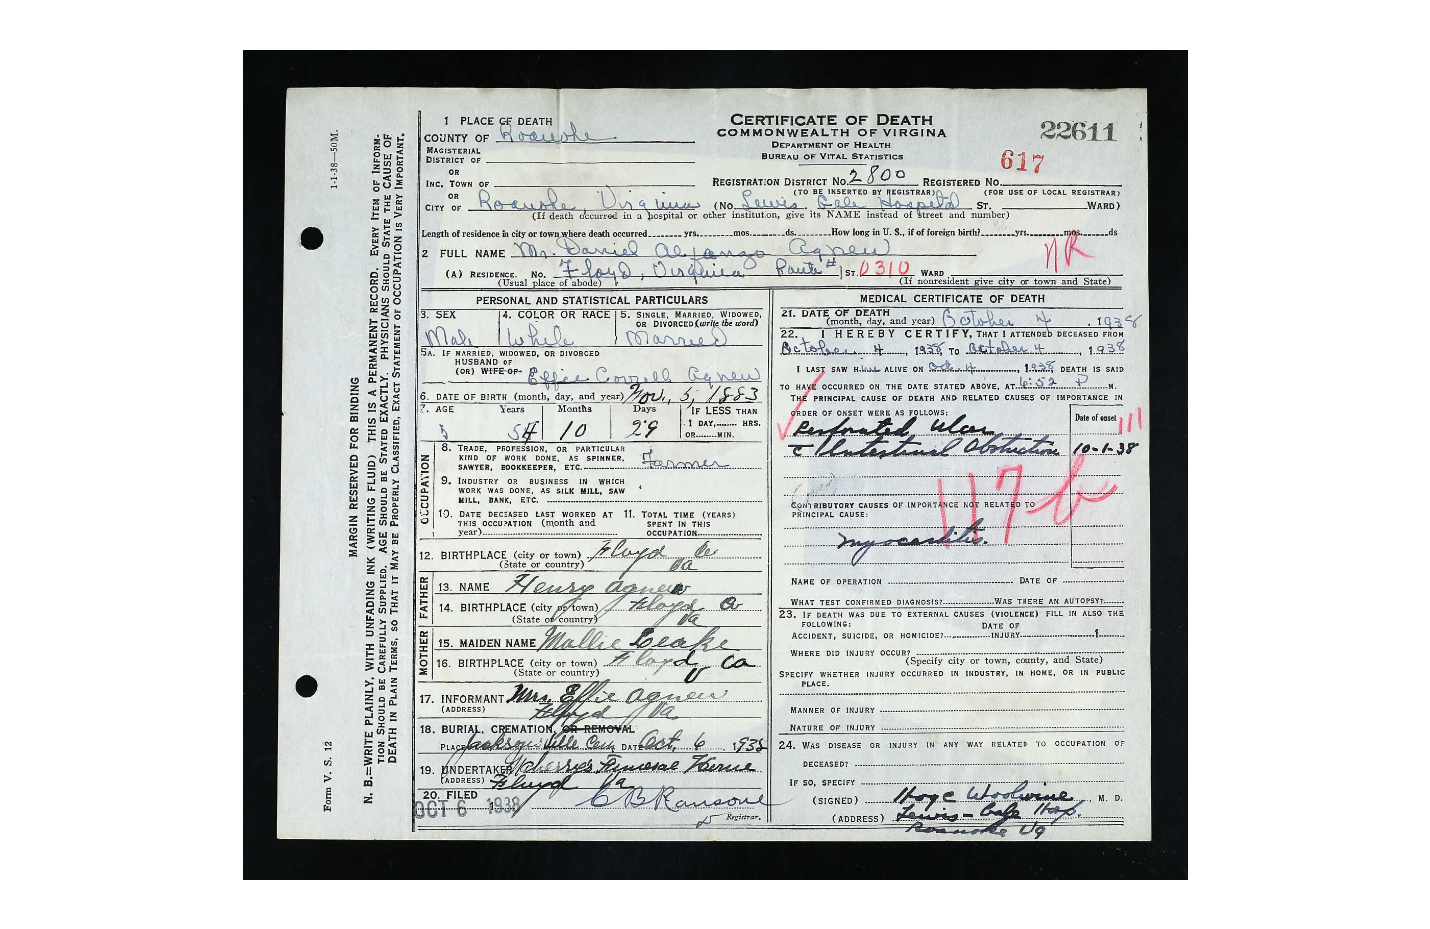 1 PLACE OF DEATH
COUNTY OF Roanoke
MAGISTERIAL
DISTRICT OF
OR
INC. TOWN OF
OR
CITY OF Roanoke, Virginia (No. Lewis Gale Hospital ST. WARD)
(If death occurred in a hospital or other institution, give its NAME instead of street and number)
CERTIFICATE OF DEATH
COMMONWEALTH OF VIRGINIA
DEPARTMENT OF HEALTH
BUREAU OF VITAL STATISTICS
22611
617
REGISTRATION DISTRICT No. 2800 REGISTERED No.
(TO BE INSERTED BY REGISTRAR) (FOR USE OF LOCAL REGISTRAR)
Length of residence in city or town where death occurred yrs. mos. ds. How long in U. S., if of foreign birth? yrs. mos. ds
2 FULL NAME Mr. Daniel Alfonzo Agnew
NR
(A) RESIDENCE. No. Floyd, Virginia Route #1 ST. 0310 WARD
(Usual place of abode) (If nonresident give city or town and State)
PERSONAL AND STATISTICAL PARTICULARS
3. SEX 4. COLOR OR RACE 5. SINGLE, MARRIED, WIDOWED,
OR DIVORCED (write the word)
Male White Married
5A. IF MARRIED, WIDOWED, OR DIVORCED
HUSBAND OF
(OR) WIFE OF Effie Agnew
6. DATE OF BIRTH (month, day, and year) Nov. 5, 1883
7. AGE Years Months Days IF LESS THAN
1 DAY, HRS.
OR MIN.
54 10 29
OCCUPATION
8. TRADE, PROFESSION, OR PARTICULAR
KIND OF WORK DONE, AS SPINNER,
SAWYER, BOOKKEEPER, ETC. Farmer
9. INDUSTRY OR BUSINESS IN WHICH
WORK WAS DONE, AS SILK MILL, SAW
MILL, BANK, ETC.
10. DATE DECEASED LAST WORKED AT 11. TOTAL TIME (YEARS)
THIS OCCUPATION (month and SPENT IN THIS
year) OCCUPATION
12. BIRTHPLACE (city or town) Floyd Co
(State or country) Va
FATHER
13. NAME Henry Agnew
14. BIRTHPLACE (city or town) Floyd Co
(State or country) Va
MOTHER
15. MAIDEN NAME Mollie Leake
16. BIRTHPLACE (city or town) Floyd Co
(State or country) V
17. INFORMANT Mrs. Effie Agnew
(ADDRESS) Floyd Va
18. BURIAL, CREMATION, OR REMOVAL
PLACE Jacksonville Cem DATE Oct. 6 1938
19. UNDERTAKER Funeral Home
(ADDRESS) Floyd Va
20. FILED OCT 6 1938 C B Ransone
Registrar.
MEDICAL CERTIFICATE OF DEATH
21. DATE OF DEATH
(month, day, and year) October 4, 1938
22. I HEREBY CERTIFY, THAT I ATTENDED DECEASED FROM
October 4, 1938 TO October 4, 1938
I LAST SAW HIM ALIVE ON Oct. 4, 1938 DEATH IS SAID
TO HAVE OCCURRED ON THE DATE STATED ABOVE, AT 6:52 P M.
THE PRINCIPAL CAUSE OF DEATH AND RELATED CAUSES OF IMPORTANCE IN
ORDER OF ONSET WERE AS FOLLOWS: Date of onset
Perforated Ulcer
c Intestinal Obstruction 10-1-38
117b
CONTRIBUTORY CAUSES OF IMPORTANCE NOT RELATED TO
PRINCIPAL CAUSE:
Myocarditis.
NAME OF OPERATION DATE OF
WHAT TEST CONFIRMED DIAGNOSIS? WAS THERE AN AUTOPSY?
23. IF DEATH WAS DUE TO EXTERNAL CAUSES (VIOLENCE) FILL IN ALSO THE
FOLLOWING: DATE OF
ACCIDENT, SUICIDE, OR HOMICIDE? INJURY 1
WHERE DID INJURY OCCUR?
(Specify city or town, county, and State)
SPECIFY WHETHER INJURY OCCURRED IN INDUSTRY, IN HOME, OR IN PUBLIC
PLACE.
MANNER OF INJURY
NATURE OF INJURY
24. WAS DISEASE OR INJURY IN ANY WAY RELATED TO OCCUPATION OF
DECEASED?
IF SO, SPECIFY
(SIGNED) Hoge Woolwine M. D.
(ADDRESS) Lewis-Gale Hosp,
Roanoke Va
1-1-38—50M.
MARGIN RESERVED FOR BINDING
N. B.—WRITE PLAINLY, WITH UNFADING INK (WRITING FLUID) THIS IS A PERMANENT RECORD. EVERY ITEM OF INFORM-
TION SHOULD BE CAREFULLY SUPPLIED. AGE SHOULD BE STATED EXACTLY. PHYSICIANS SHOULD STATE THE CAUSE OF
DEATH IN PLAIN TERMS, SO THAT IT MAY BE PROPERLY CLASSIFIED. EXACT STATEMENT OF OCCUPATION IS VERY IMPORTANT.
Form V. S. 12